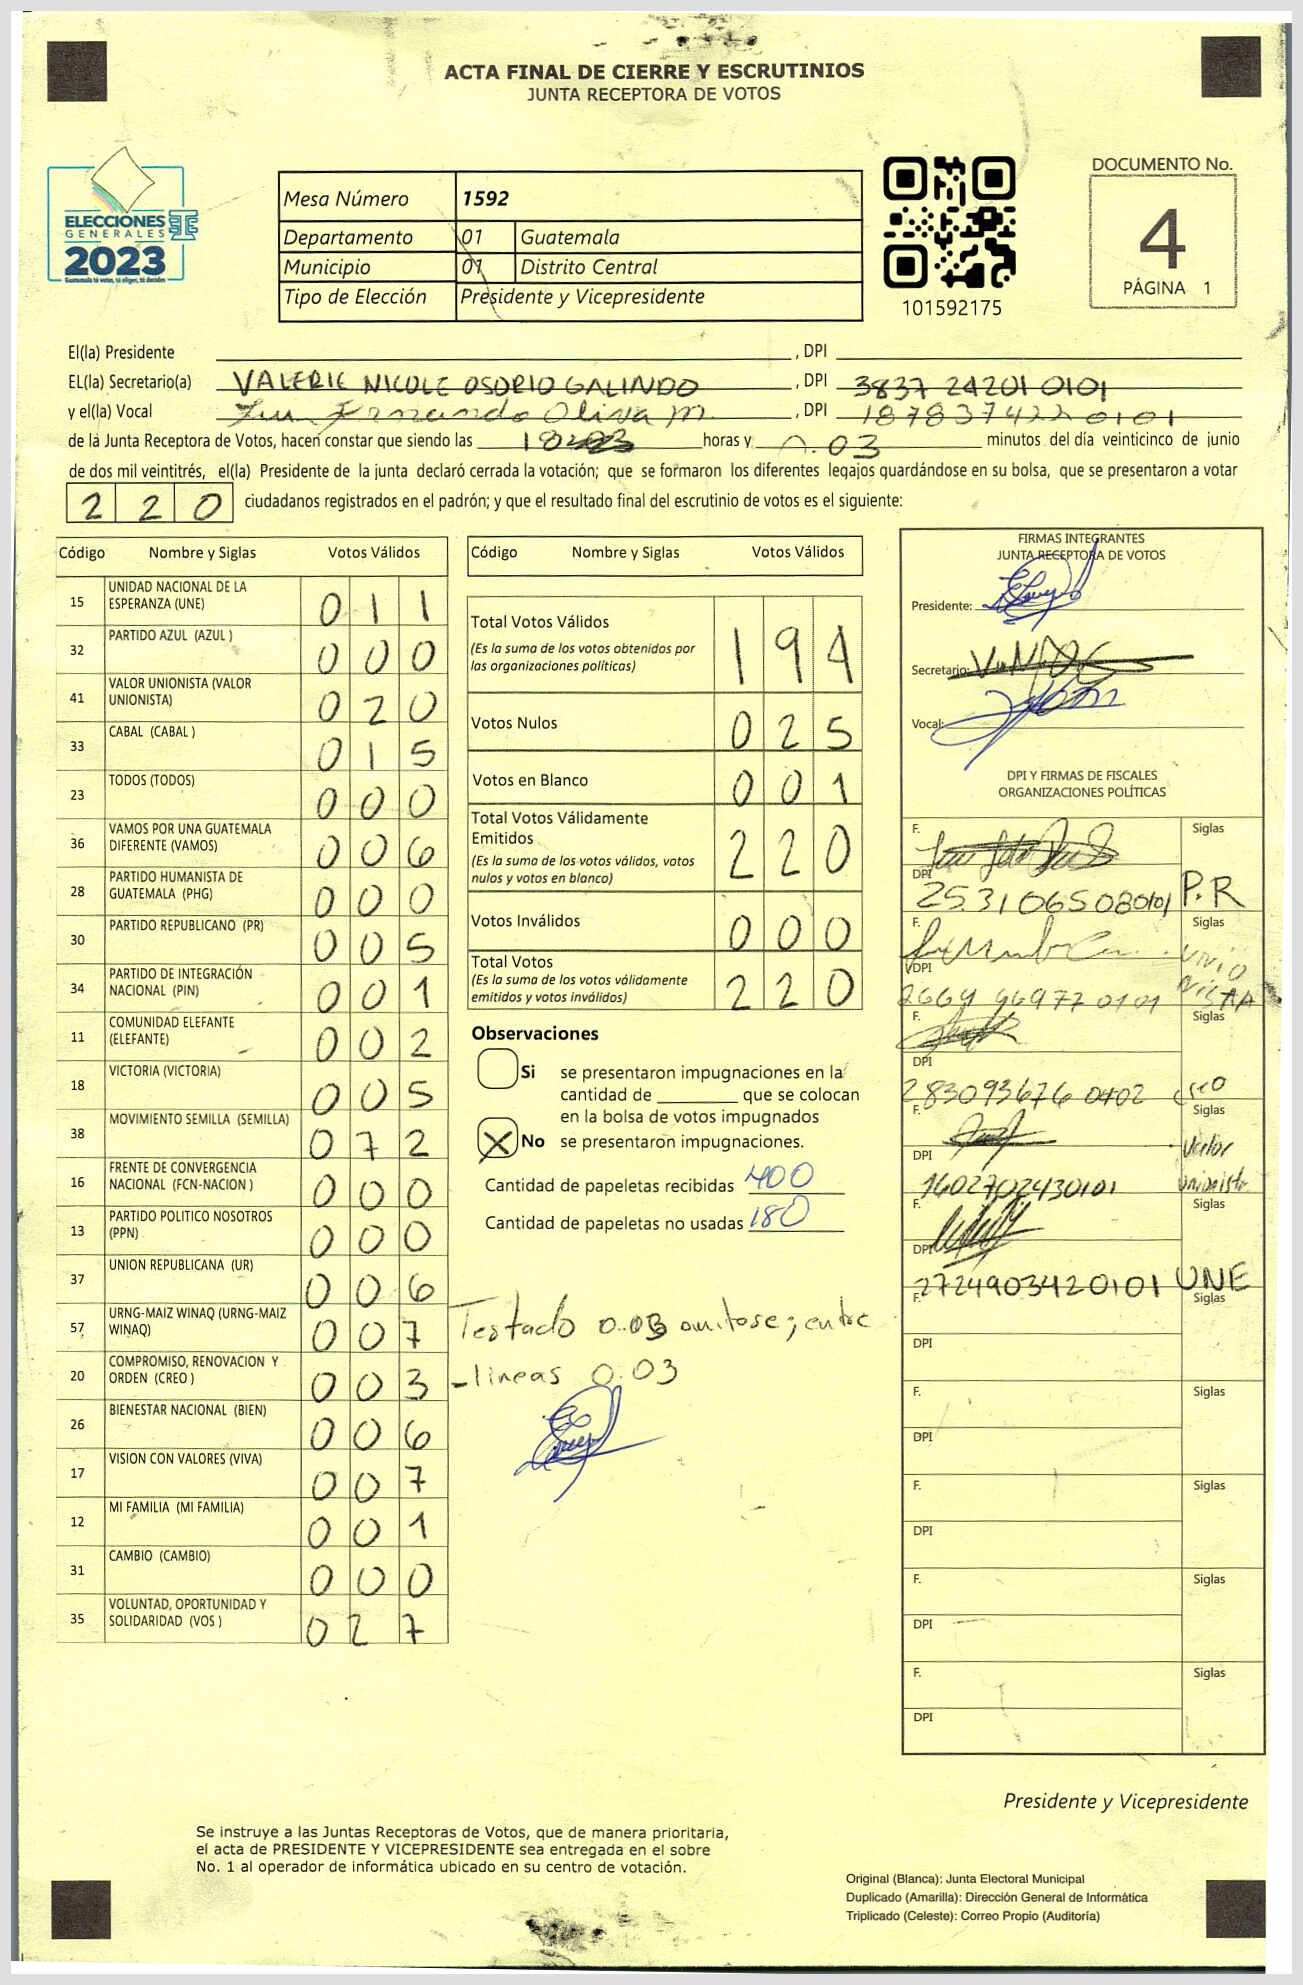 ACTA FINAL DE CIERRE Y ESCRUTINIOS
JUNTA RECEPTORA DE VOTOS
ELECCIONES
GENERALES
2023
Guatemala tú votas, tú eliges, tú decides
Mesa Número 1592
Departamento 01 Guatemala
Municipio 01 Distrito Central
Tipo de Elección Presidente y Vicepresidente
101592175
DOCUMENTO No.
4
PÁGINA 1
El(la) Presidente , DPI
EL(la) Secretario(a) VALERIE NICOLE OSORIO GALINDO , DPI 3837 24201 0101
y el(la) Vocal Fernando Oliva M. , DPI 1878374220101
de la Junta Receptora de Votos, hacen constar que siendo las 18 horas y 0.03 minutos del día veinticinco de junio
de dos mil veintitrés, el(la) Presidente de la junta declaró cerrada la votación; que se formaron los diferentes legajos quardándose en su bolsa, que se presentaron a votar
220 ciudadanos registrados en el padrón; y que el resultado final del escrutinio de votos es el siguiente:
Código Nombre y Siglas Votos Válidos
15 UNIDAD NACIONAL DE LA ESPERANZA (UNE) 011
32 PARTIDO AZUL (AZUL ) 000
41 VALOR UNIONISTA (VALOR UNIONISTA) 020
33 CABAL (CABAL ) 015
23 TODOS (TODOS) 000
36 VAMOS POR UNA GUATEMALA DIFERENTE (VAMOS) 006
28 PARTIDO HUMANISTA DE GUATEMALA (PHG) 000
30 PARTIDO REPUBLICANO (PR) 005
34 PARTIDO DE INTEGRACIÓN NACIONAL (PIN) 001
11 COMUNIDAD ELEFANTE (ELEFANTE) 002
18 VICTORIA (VICTORIA) 005
38 MOVIMIENTO SEMILLA (SEMILLA) 072
16 FRENTE DE CONVERGENCIA NACIONAL (FCN-NACION ) 000
13 PARTIDO POLITICO NOSOTROS (PPN) 000
37 UNION REPUBLICANA (UR) 006
57 URNG-MAIZ WINAQ (URNG-MAIZ WINAQ) 007
20 COMPROMISO, RENOVACION Y ORDEN (CREO ) 003
26 BIENESTAR NACIONAL (BIEN) 006
17 VISION CON VALORES (VIVA) 007
12 MI FAMILIA (MI FAMILIA) 001
31 CAMBIO (CAMBIO) 000
35 VOLUNTAD, OPORTUNIDAD Y SOLIDARIDAD (VOS ) 027
Código Nombre y Siglas Votos Válidos
Total Votos Válidos 194
(Es la suma de los votos obtenidos por
las organizaciones políticas)
Votos Nulos 025
Votos en Blanco 001
Total Votos Válidamente
Emitidos 220
(Es la suma de los votos válidos, votos
nulos y votos en blanco)
Votos Inválidos 000
Total Votos 220
(Es la suma de los votos válidamente
emitidos y votos inválidos)
Observaciones
Si se presentaron impugnaciones en la
cantidad de ________ que se colocan
en la bolsa de votos impugnados
X No se presentaron impugnaciones.
Cantidad de papeletas recibidas 400
Cantidad de papeletas no usadas 180
Testado 0.03 omitase; entre
-lineas 0.03
FIRMAS INTEGRANTES
JUNTA RECEPTORA DE VOTOS
Presidente:
Secretario:
Vocal:
DPI Y FIRMAS DE FISCALES
ORGANIZACIONES POLÍTICAS
F. Siglas
DPI 2531065080101 P.R
F. Siglas
DPI 2664 96977 0101 UNIONISTA
F. Siglas
DPI 283093676 0402 creo
F. Siglas
DPI 1602702430101 Valor Unionista
F. Siglas
DPI 2724903420101 UNE
F. Siglas
DPI
F. Siglas
DPI
F. Siglas
DPI
F. Siglas
DPI
F. Siglas
DPI
Presidente y Vicepresidente
Se instruye a las Juntas Receptoras de Votos, que de manera prioritaria,
el acta de PRESIDENTE Y VICEPRESIDENTE sea entregada en el sobre
No. 1 al operador de informática ubicado en su centro de votación.
Original (Blanca): Junta Electoral Municipal
Duplicado (Amarilla): Dirección General de Informática
Triplicado (Celeste): Correo Propio (Auditoría)